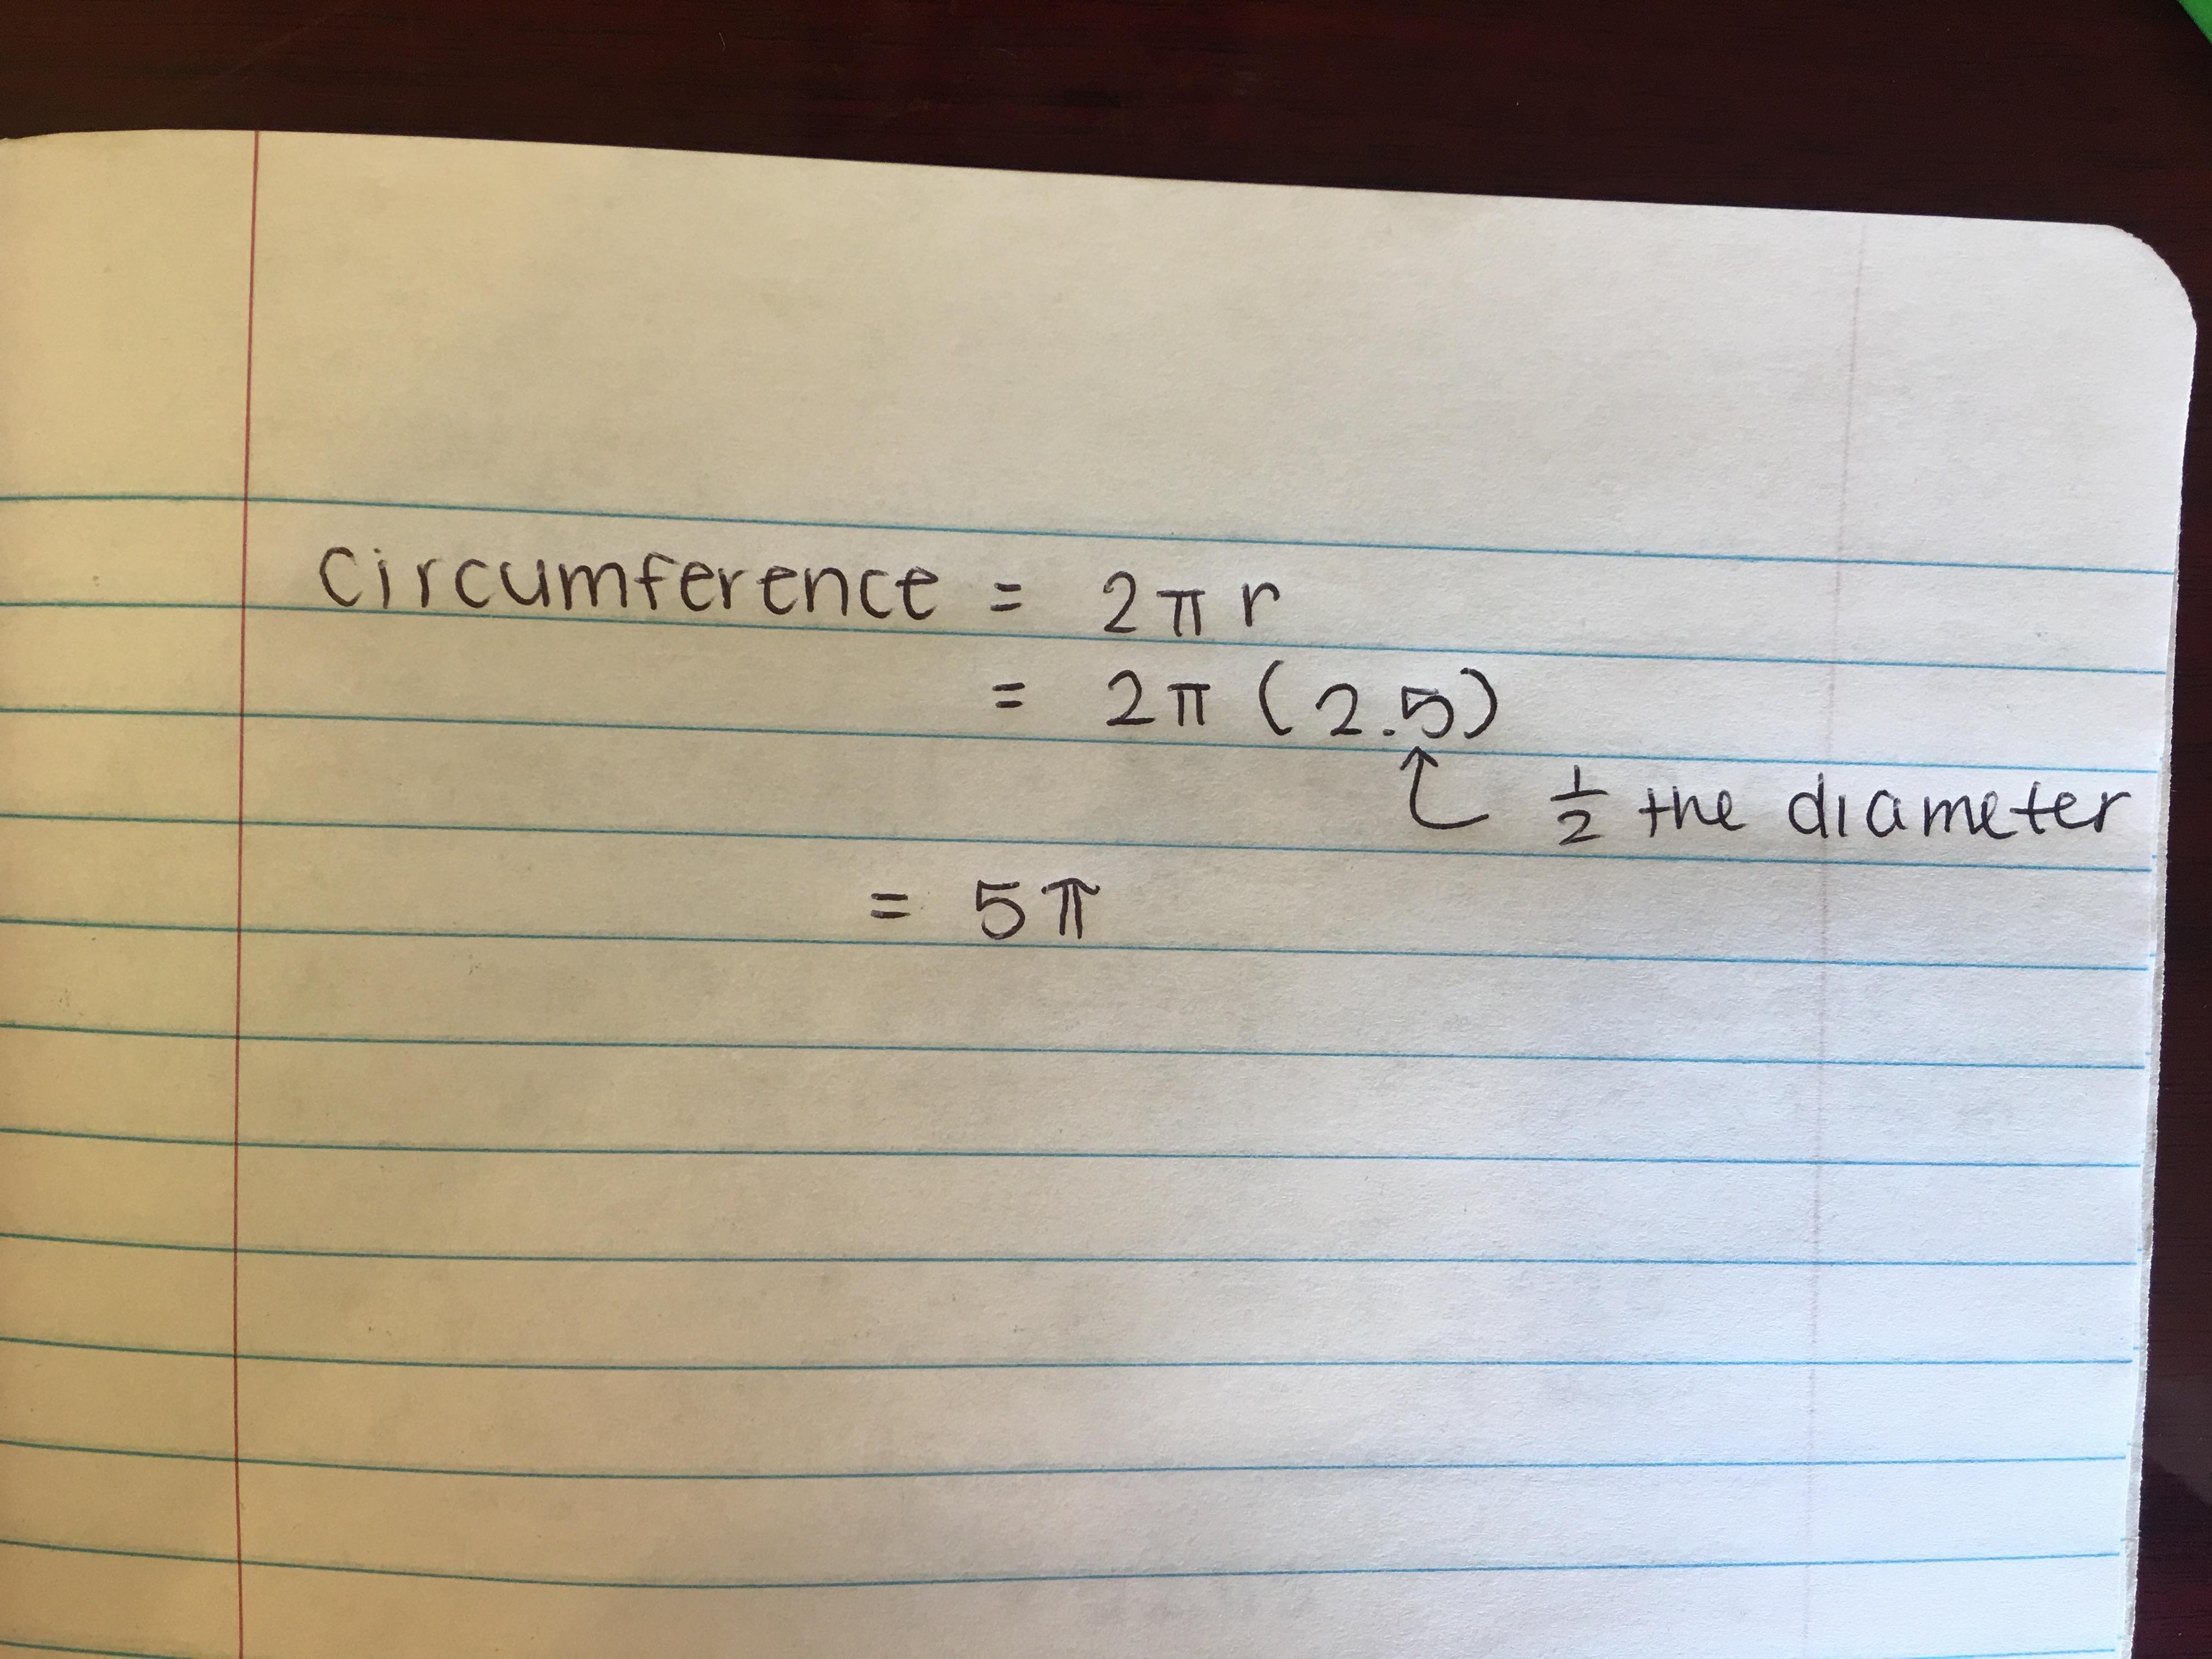 Circumference = 2πr
= 2π (2.5)
½ the diameter
= 5π